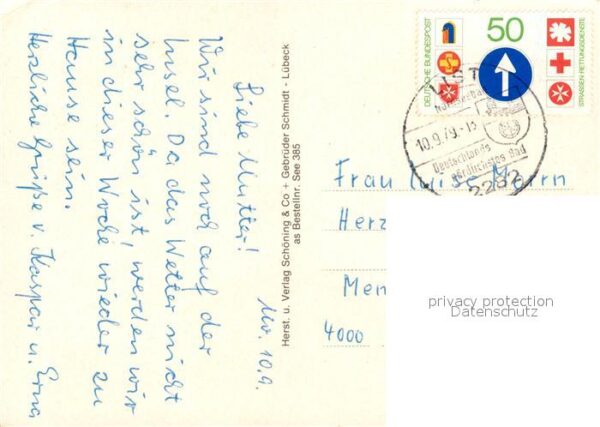 Mo. 10.9.
Liebe Mutter!
Wir sind noch auf der
Insel. Da das Wetter nicht
sehr schön ist, werden wir
in dieser Woche wieder zu
Hause sein.
Herzliche Grüße v. Kaspar u. Erna
Herst. u. Verlag Schöning & Co + Gebrüder Schmidt - Lübeck
as Bestellnr. See 385
DEUTSCHE BUNDESPOST
50
STRASSEN-RETTUNGSDIENSTE
LIST
10.9.79.-15
Deutschlands
nördlichstes Bad
2282
Frau Luise Mern
Herz
Men
4000
privacy protection
Datenschutz